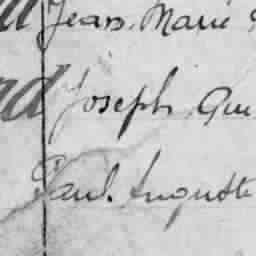 Jean. Marie
Joseph. Gui
Paul. Auguste